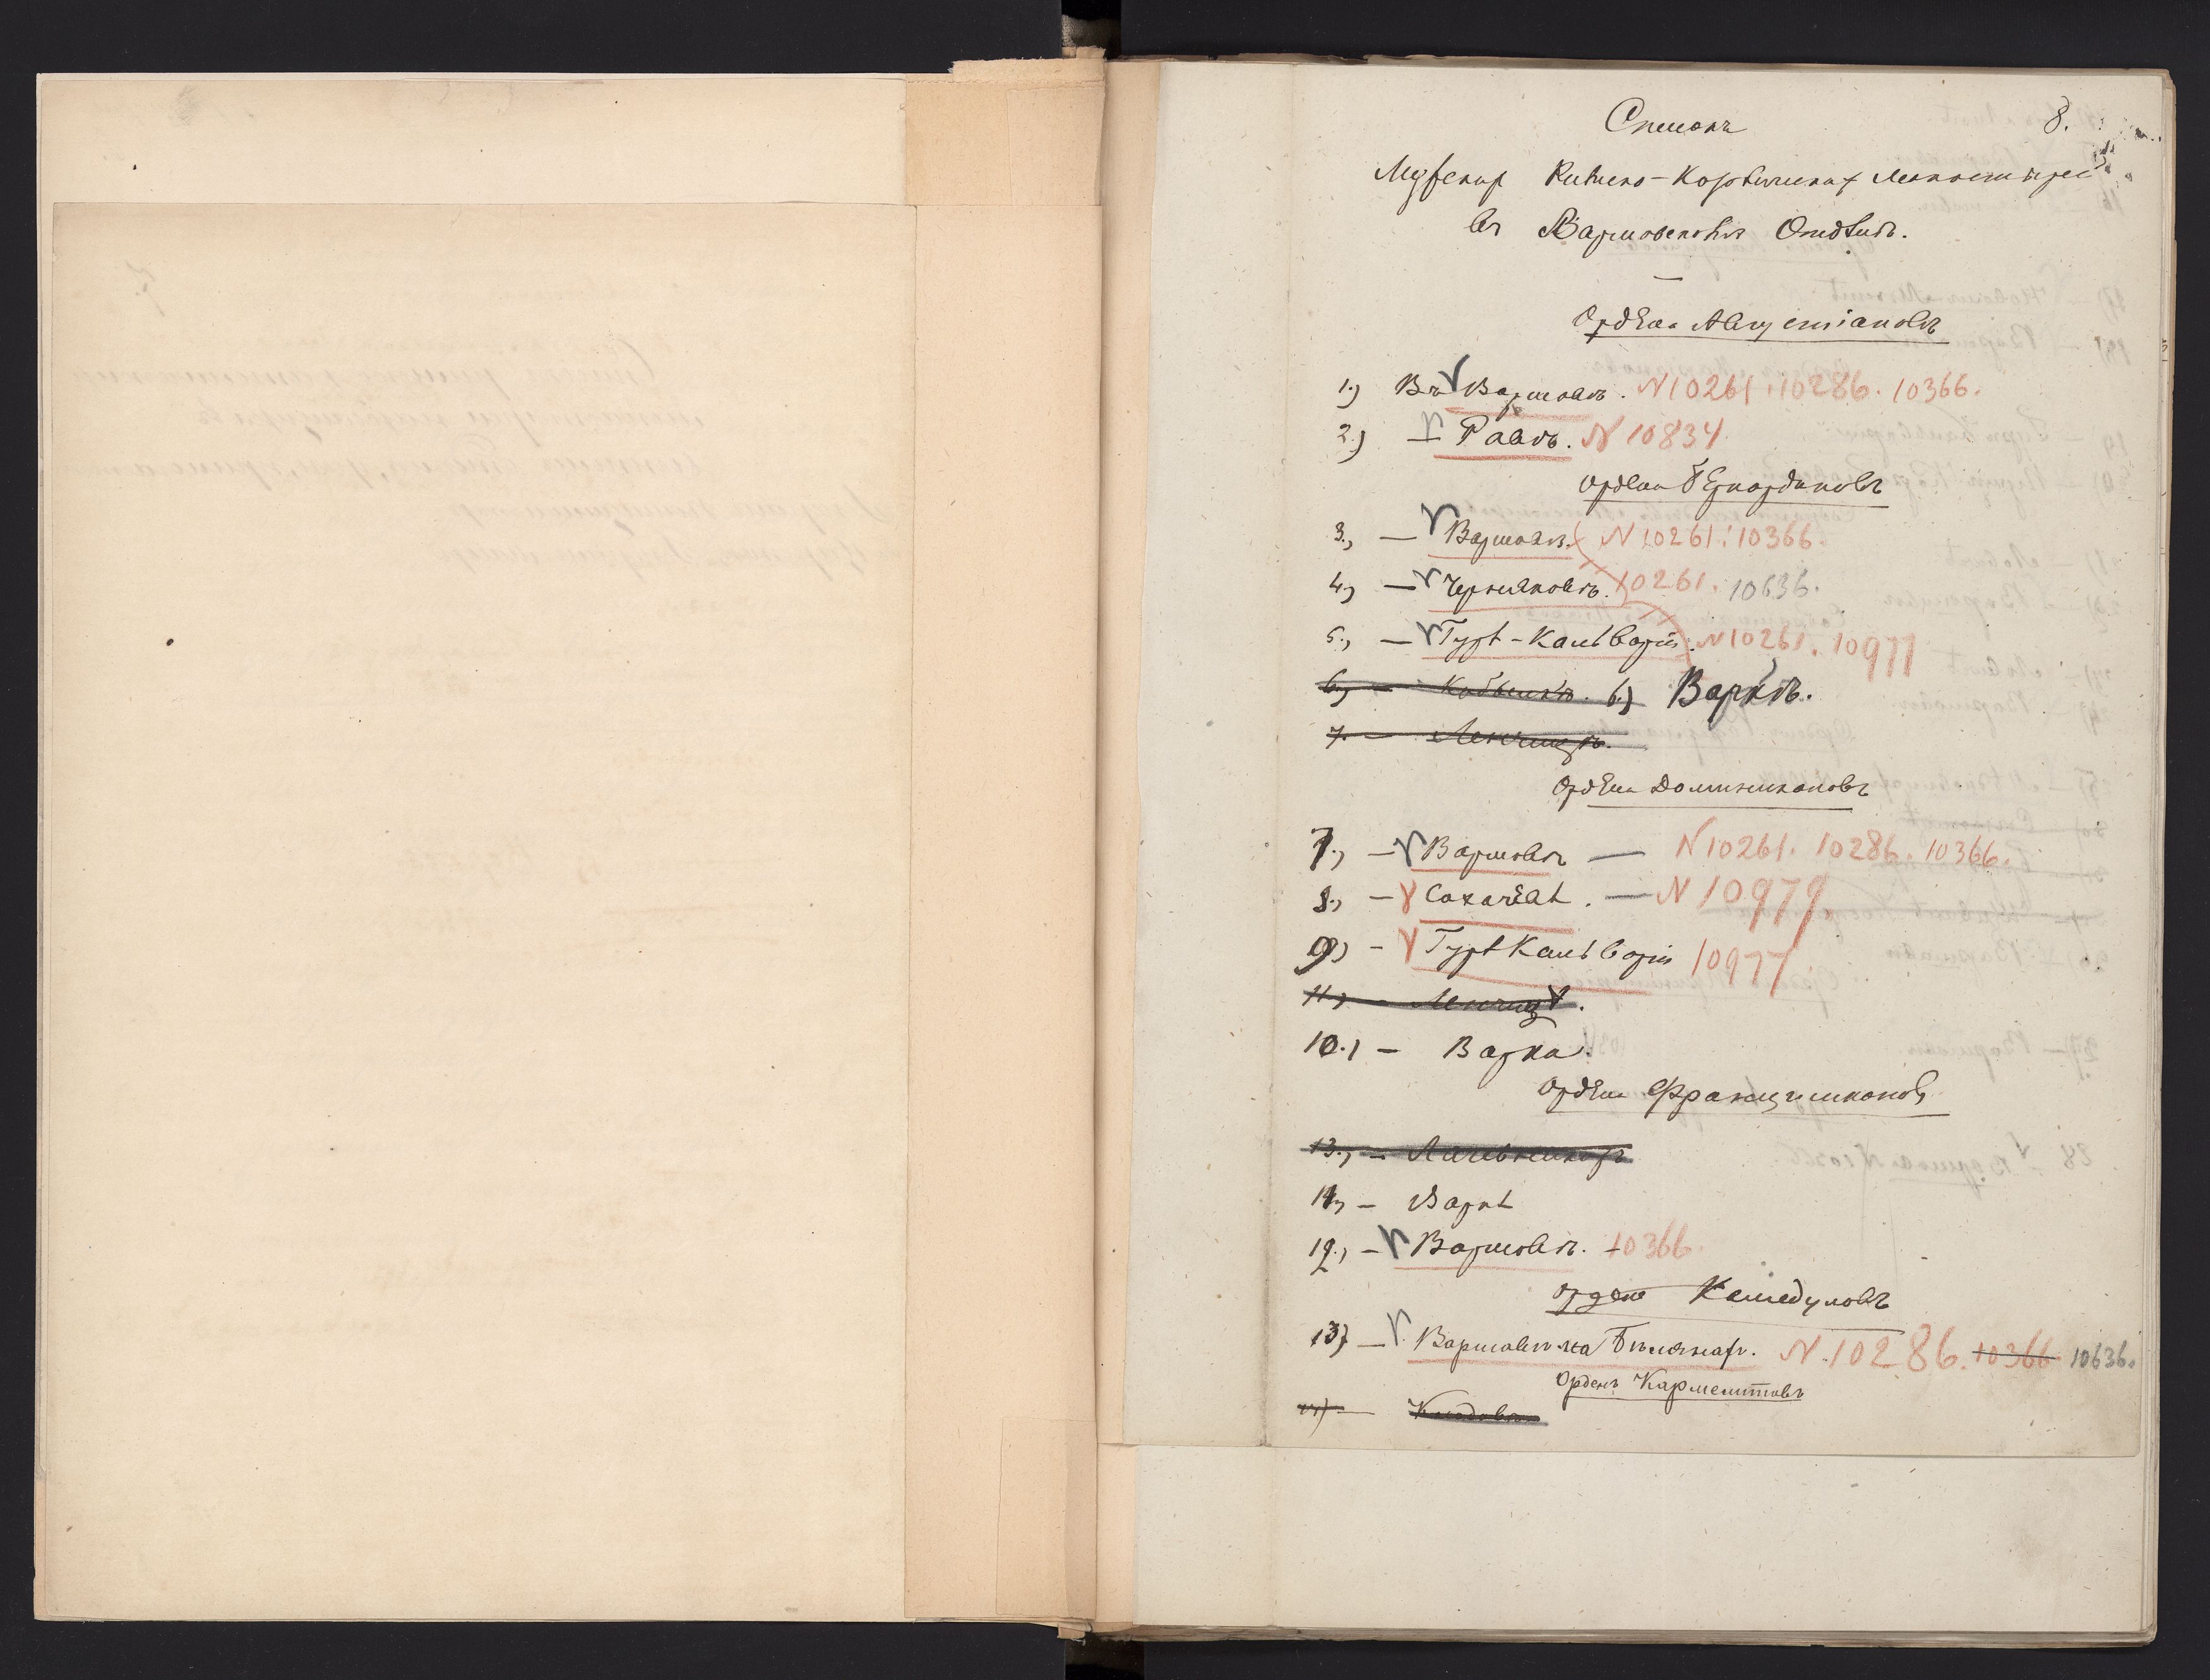 8.
Списокъ
Мужскихъ Римско-Католическихъ Монастырей
въ Варшавскомъ Отдѣлѣ.
Ордена Августіановъ
1.) Въ Варшавѣ. N 10261. 10286. 10366.
2.) — Равѣ. N 10834.
Ордена Бернардиновъ
3., — Варшавѣ. N 10261. 10366.
4., — Черняковѣ. 10261. 10636.
5., — Гурѣ-Кальваріи. N 10261. 10977
6., — 6.) Варкѣ.
7. — Ленчицѣ.
Ордена Доминикановъ
7., — Варшавѣ — N 10261. 10286. 10366.
8., — Сохачевѣ. — N 10979.
9) — Гурѣ Кальваріи 10977
11., — Ленчицѣ.
10.) — Варка.
Ордена Францишкановъ
13., —
11, — Варкѣ
12., — Варшавѣ. 10366.
Ордена Камедуловъ
13) — Варшавѣ на Бѣлянахъ. N. 10286. 10366 10636.
Орденъ Кармелитовъ
14) —